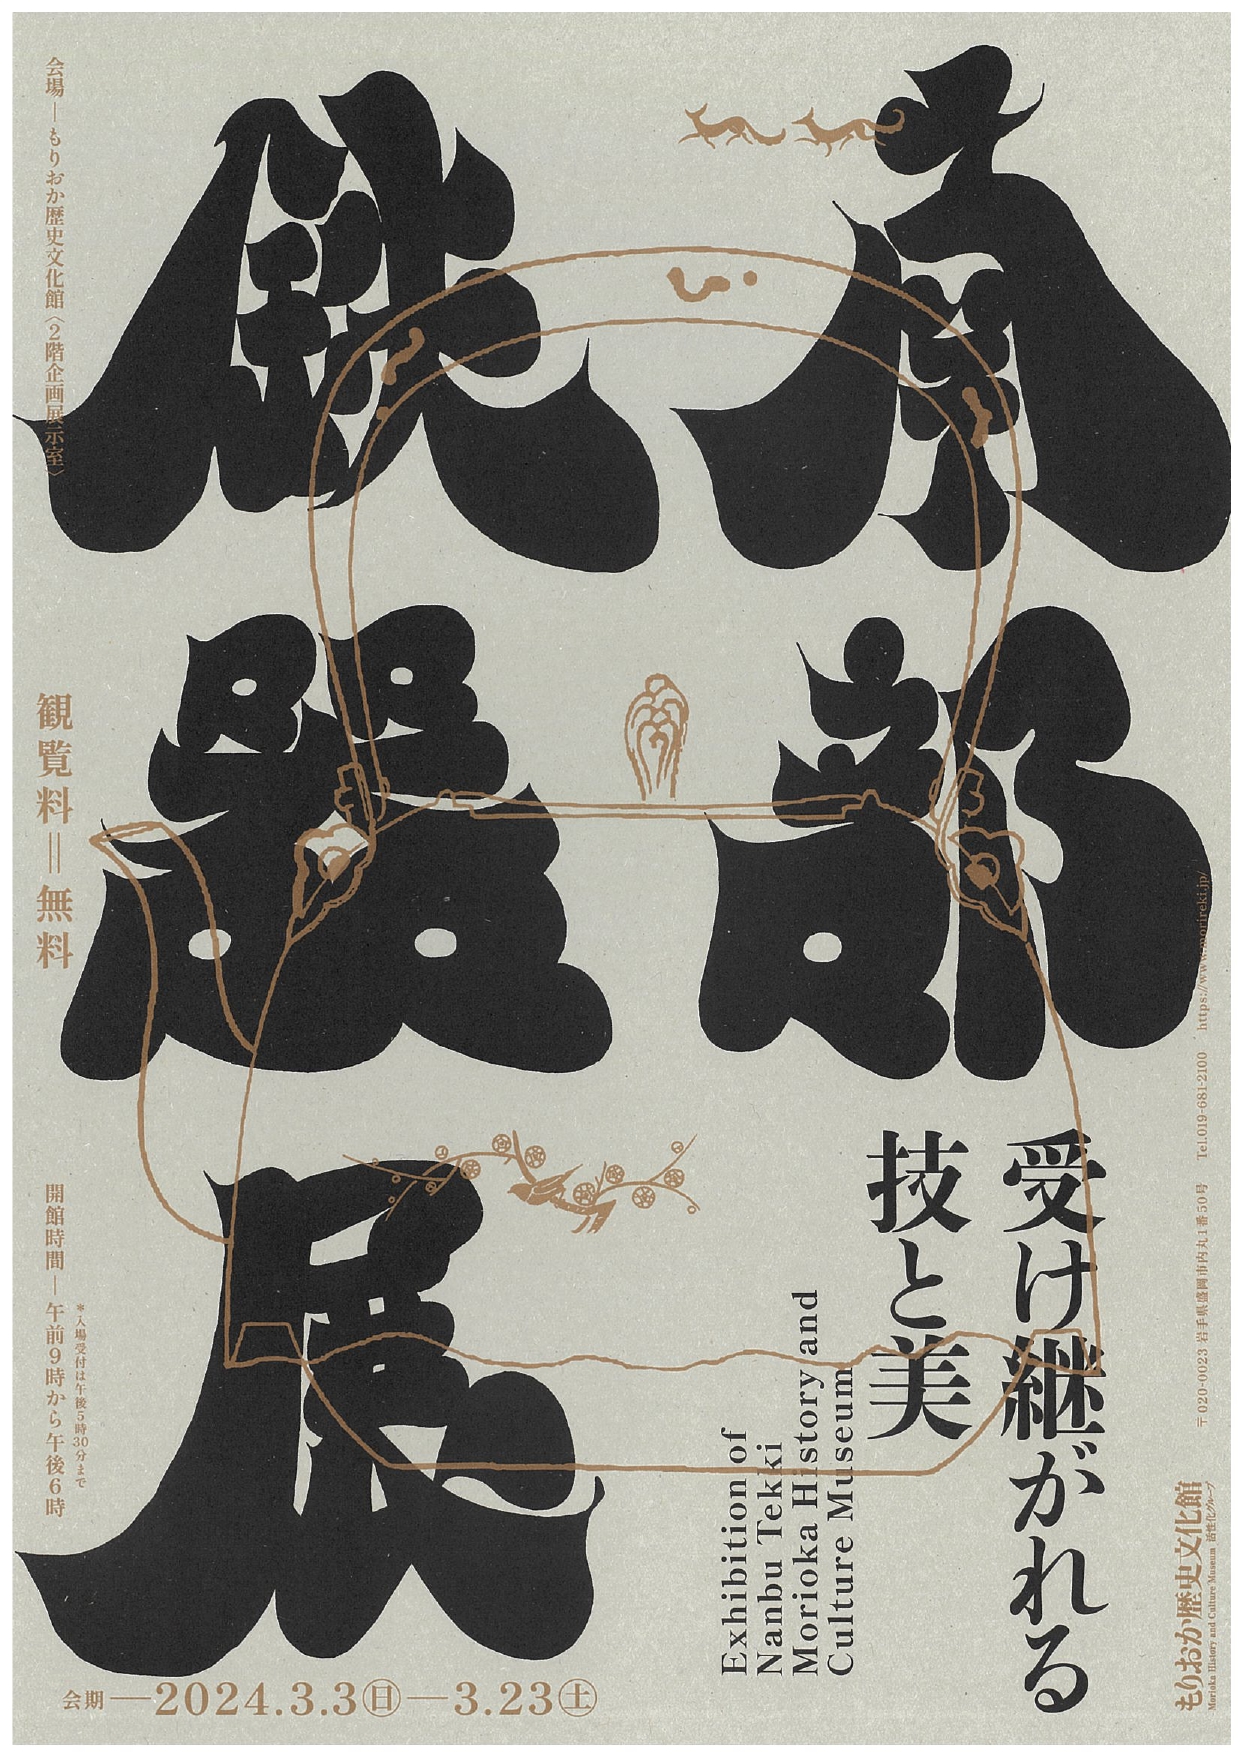 南部
鉄器
展
受け継がれる
技と美
Exhibition of
Nanbu Tekki
Morioka History and
Culture Museum
会場—もりおか歴史文化館〈2階企画展示室〉
観覧料＝無料
開館時間—午前9時から午後6時
＊入場受付は午後5時30分まで
会期—2024.3.3㊐—3.23㊏
〒020-0023 岩手県盛岡市内丸1番50号　Tel.019-681-2100　https://www.morireki.jp/
もりおか歴史文化館
Morioka History and Culture Museum 活性化グループ